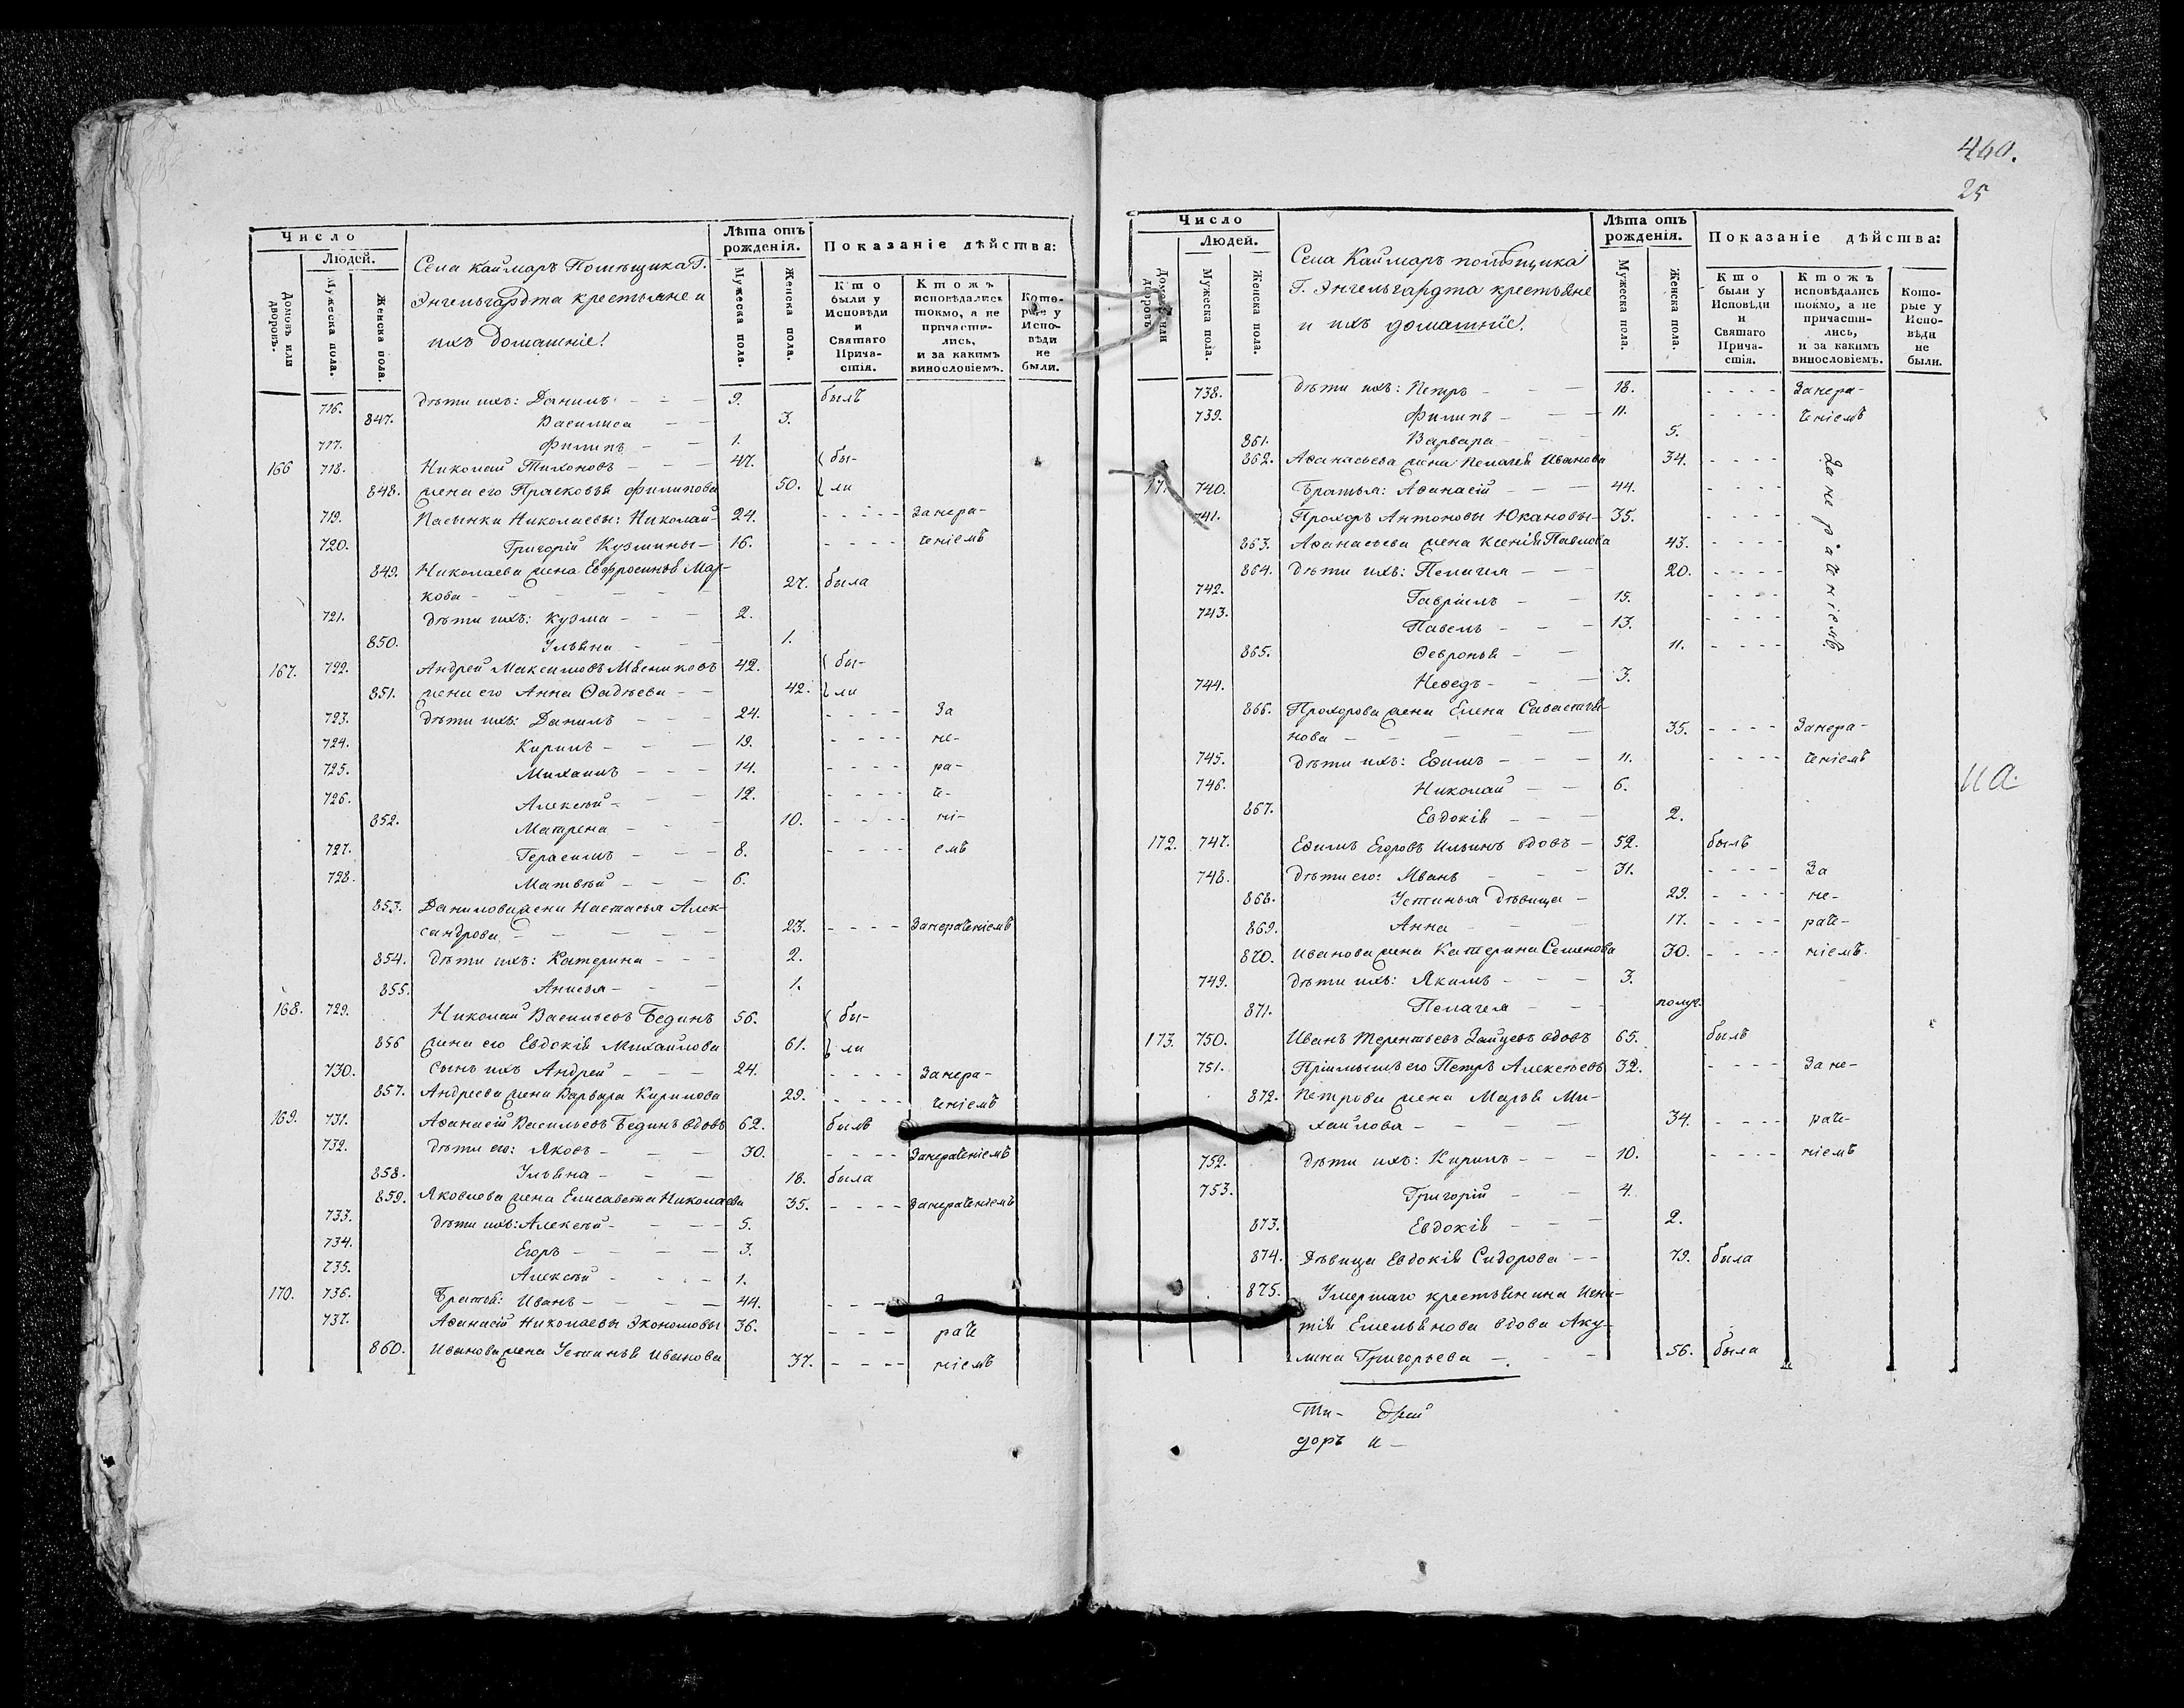 460.
25
Число
Людей.
Домовъ или дворовъ.
Мужеска пола.
Женска пола.
Села Каймаръ Помѣщика Г.
Энгельгардта крестьяне и
ихъ домашніе:
Лѣта отъ рожденія.
Мужеска пола.
Женска пола.
Показаніе дѣйства:
Кто были у Исповѣди и Святаго Причастія.
Ктожъ исповѣдались токмо, а не причастились, и за какимъ винословіемъ.
Которые у Исповѣди не были.
716. дѣти ихъ: Данилъ — — 9. былъ
847. Василиса — — 3.
717. Филипъ — — 1.
166 718. Николай Тихоновъ — — — 47. бы-
848. жена его Прасковья Филипова 50. ли
719. Пасынки Николаевы: Николай — 24. - - - - Занера-
720. Григорій Кузмины — 16. - - - - ченіемъ
849. Николаева жена Евфросинья Мар-
кова — — — — — 27. была
721. дѣти ихъ: Кузма — — — 2.
850. Ульяна — — — 1.
167. 722. Андрей Максимовъ Мясниковъ 42. бы-
851. жена его Анна Ѳадѣева — — 42. ли
723. дѣти ихъ: Данилъ — — — 24. - - - - За
724. Кирилъ — — — 19. - - - - не-
725. Михаилъ — — — 14. - - - - ра-
726. Алексѣй — — — 12. - - - - че-
852. Матрена — — — 10. - - - - ні-
727. Герасимъ — — — 8. - - - - емъ
728. Матвѣй — — — 6.
853. Данилова жена Настасья Алек-
сандрова — — — — — 23. - - - - Занераченіемъ
854. дѣти ихъ: Катерина — — — 2.
855. Анисья — — — 1.
168. 729. Николай Васильевъ Бединъ 56. бы-
856 жена его Евдокія Михайлова 61. ли
730. сынъ ихъ Андрей — — — 24. - - - - Занера-
857. Андреева жена Варвара Кирилова 29. - - - - ченіемъ
169. 731. Аѳанасій Васильевъ Бединъ вдовъ 62. былъ
732. дѣти его: Яковъ — — — 30. - - - - Занераченіемъ
858. Ульяна — — — 18. была
859. Яковлева жена Елисавета Николаева 35. - - - - Занераченіемъ
733. дѣти ихъ: Алексѣй — — — 5.
734. Егоръ — — — 3.
735. Алексѣй — — — 1.
170. 736. Братья: Иванъ — — — 44. - - -
737. Аѳанасій Николаевы Экономовы 36. - - - раче
860. Иванова жена Устинья Иванова 37. - - - - ніемъ
Число
Людей.
Домовъ или дворовъ
Мужеска пола.
Женска пола.
Села Каймаръ помѣщика
Г. Энгельгардта крестьяне
и ихъ домашніе.
Лѣта отъ рожденія.
Мужеска пола.
Женска пола.
Показаніе дѣйства:
Кто были у Исповѣди и Святаго Причастія.
Ктожъ исповѣдались токмо, а не причастились, и за какимъ винословіемъ.
Которые у Исповѣди не были.
738. дѣти ихъ: Петръ — — — 18. - - - - Занера-
739. Филипъ — — — 11. - - - - ченіемъ
861. Варвара — — — 5.
862. Аѳанасьева жена Пелагея Иванова 34. - - - - Занераченіемъ
171. 740. Братья: Аѳанасій — — — 44. - - - -
741. Прохоръ Антоновы Юкановы — 35. - - - -
863. Аѳанасьева жена Ксенія Павлова 43. - - - -
864. дѣти ихъ: Пелагея — — — 20. - - - -
742. Гавріилъ — — 15. - - - -
743. Павелъ — — — 13. - - - -
865. Ѳевронья — — 11. - - - -
744. Неѳедъ — — — 3.
866. Прохорова жена Елена Савастья-
нова — — — — — 35. - - - - Занера-
745. дѣти ихъ: Еѳимъ — — — 11. - - - - ченіемъ
746. Николай — — 6.
867. Евдокія — — — 2.
172. 747. Еѳимъ Егоровъ Ильинъ вдовъ — 52. былъ
748. дѣти его: Иванъ — — — 31. - - - - За
868. Устинья дѣвица — 22. - - - - не-
869. Анна — — — 17. - - - - раче-
870. Иванова жена Катерина Семенова 30. - - - - ніемъ.
749. дѣти ихъ: Якимъ — — — 3.
871. Пелагея — — — полуг.
173. 750. Иванъ Терентьевъ Зайцевъ вдовъ 65. былъ
751. Пріимышъ его Петръ Алексѣевъ 32. - - - - Зане-
872. Петрова жена Марья Ми-
хайлова — — — — 34. - - - - раче-
752. дѣти ихъ: Кирилъ — — — 10. - - - - ніемъ
753. Григорій — — 4.
873. Евдокія — — — 2.
874. Дѣвица Евдокія Сидорова — — 79. была
875. Умершаго крестьянина Игна-
тія Емельянова вдова Аку-
лина Григорьева — - — 56. была
на